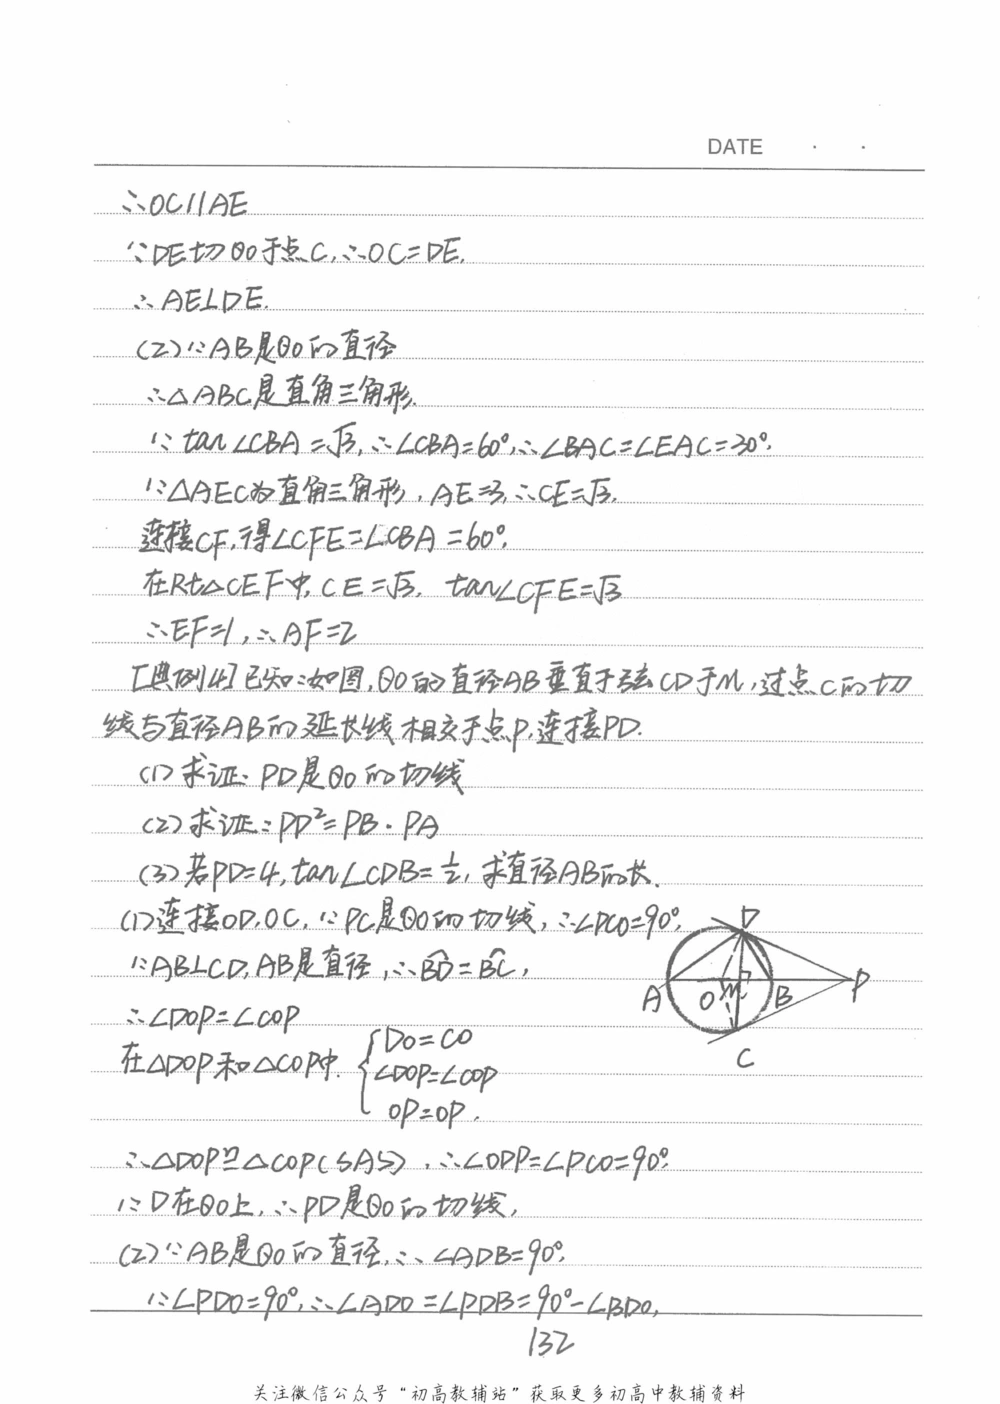 DATE · ·
∴OC//AE
∵DE切⊙O于点C,∴OC=DE,
∴AE⊥DE.
(2)∵AB是⊙O的直径
∴△ABC是直角三角形.
∵tan∠CBA=√3,∴∠CBA=60°,∴∠BAC=∠EAC=30°,
∵△AEC为直角三角形,AE=3,∴CE=√3,
连接CF,得∠CFE=∠CBA=60°,
在Rt△CEF中,CE=√3,tan∠CFE=√3
∴EF=1,∴AF=2
[典例4]已知:如图,⊙O的直径AB垂直于弦CD于M,过点C的切
线与直径AB的延长线相交于点P,连接PD.
(1)求证:PD是⊙O的切线
(2)求证:PD²=PB·PA
(3)若PD=4,tan∠CDB=1/2,求直径AB的长.
(1)连接OD,OC,∵PC是⊙O的切线,∴∠PCO=90°,
∵AB⊥CD,AB是直径,∴B͡D=B͡C,
∴∠DOP=∠COP
在△DOP和△COP中,
DO=CO
∠DOP=∠COP
OP=OP.
D
A
O
M
B
P
C
∴△DOP≌△COP(SAS),∴∠ODP=∠PCO=90°,
∵D在⊙O上,∴PD是⊙O的切线,
(2)∵AB是⊙O的直径,∴∠ADB=90°,
∵∠PDO=90°,∴∠ADO=∠PDB=90°-∠BDO,
132
关注微信公众号“初高教辅站”获取更多初高中教辅资料